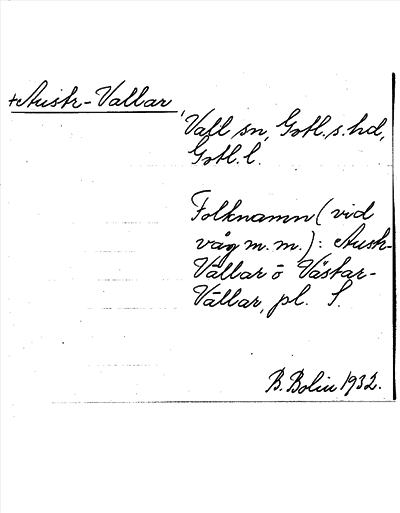 +Austr-Vallar,
Vall sn, Gotl. s. hd,
Gotl. l.
Folknamn (vid
väg m. m.): Austr-
Vallar o Västar-
Vallar, pl. S.
B. Bolin 1932.